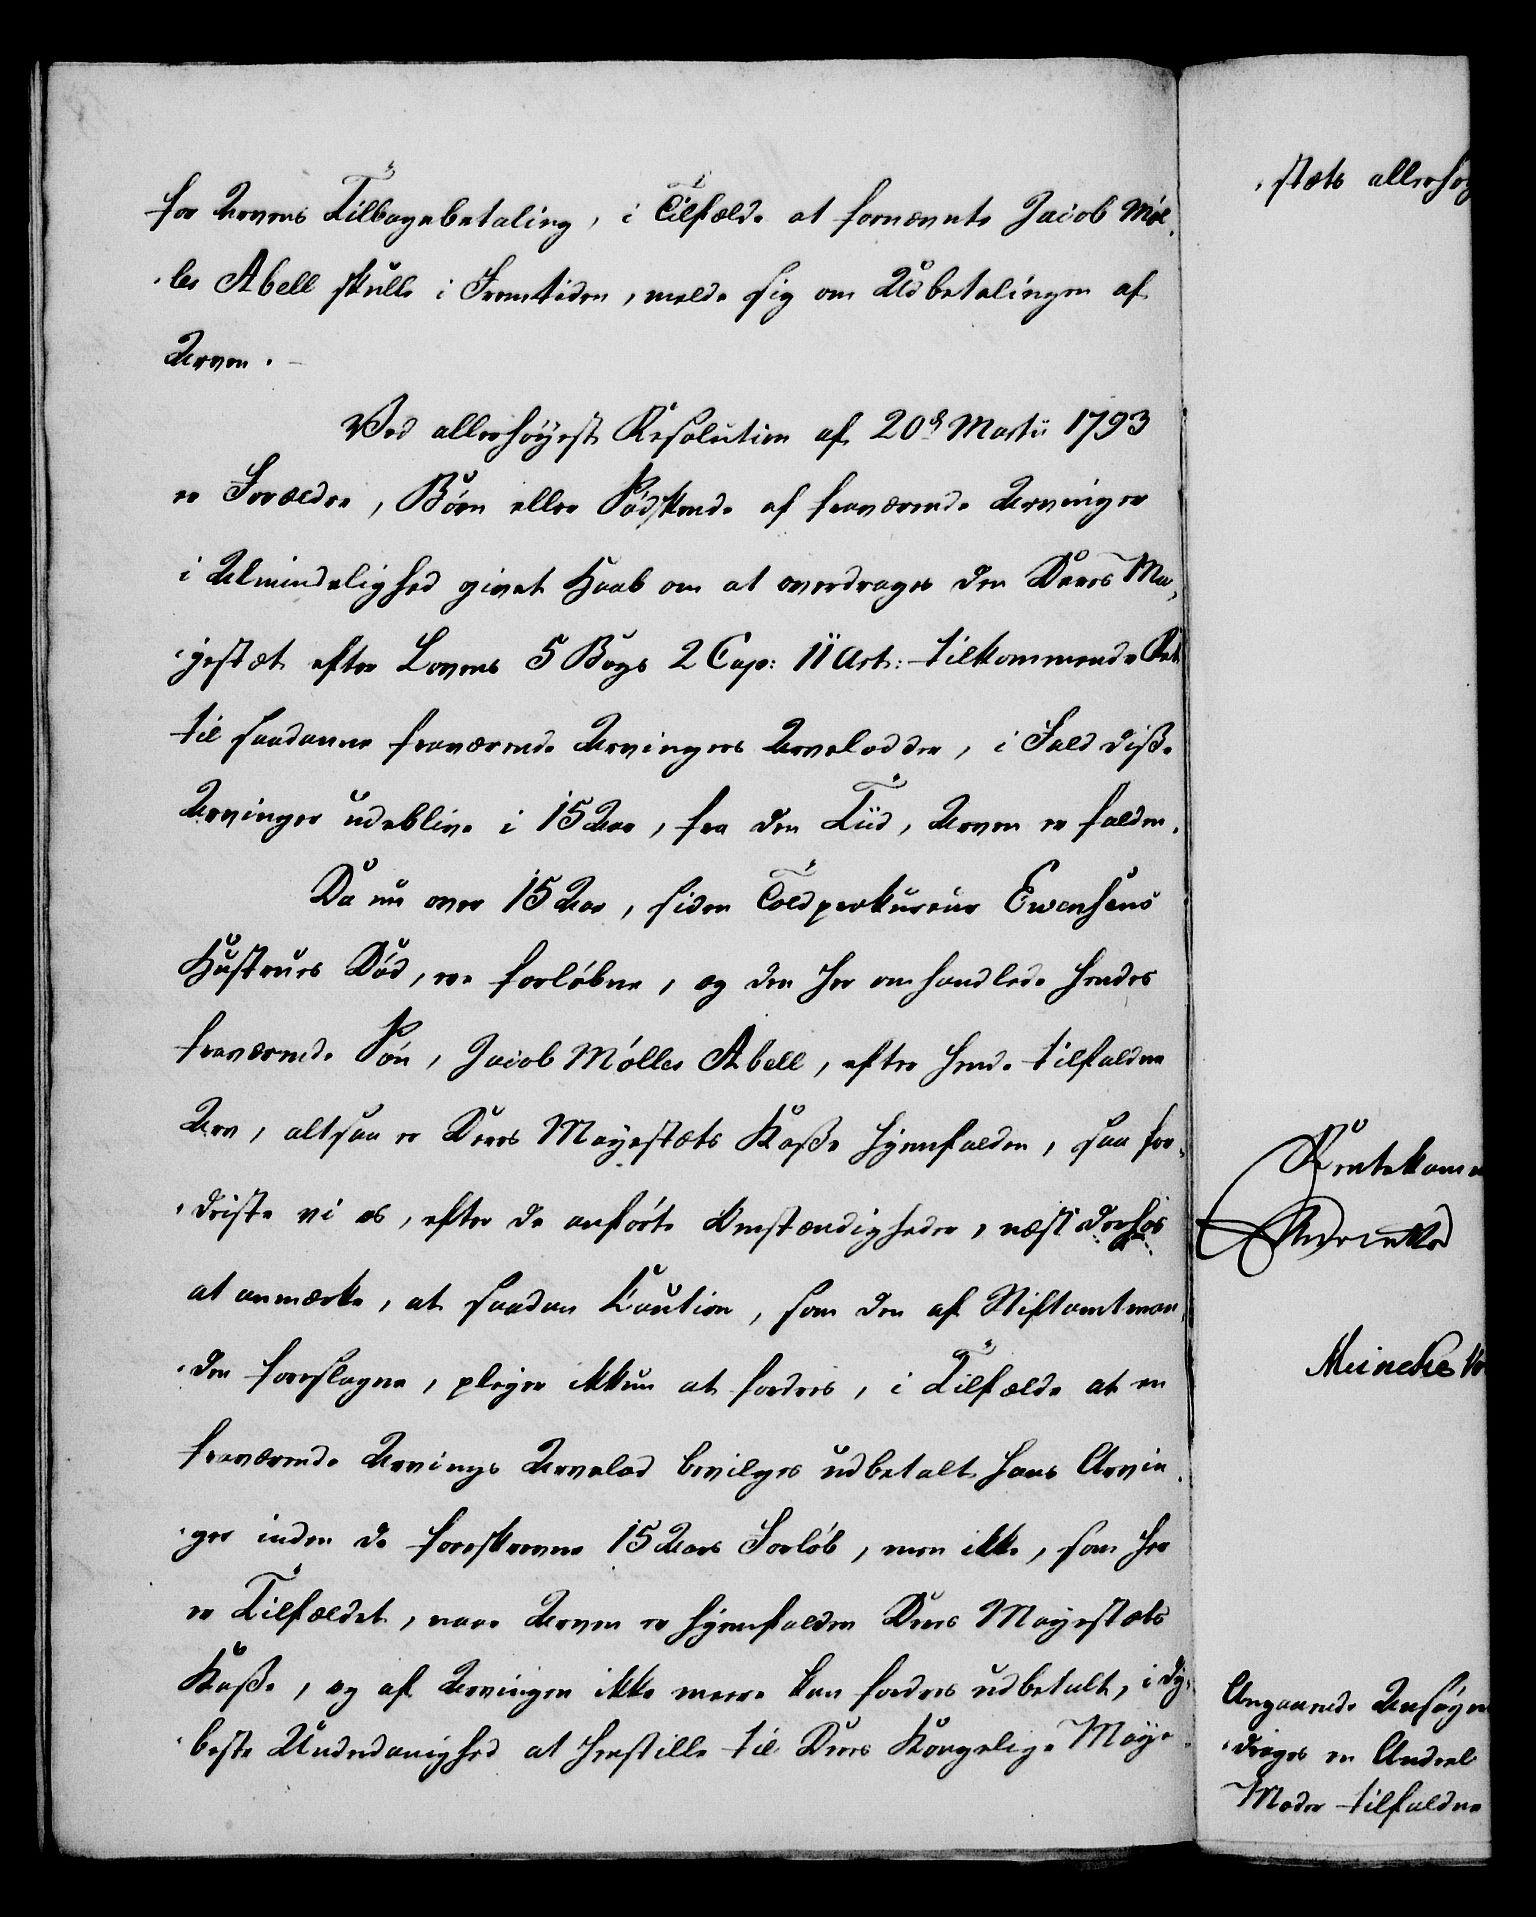 for Arvens Tilbagebetaling, i Tilfælde at fornævnte Jacob Møl-
-ler Abell skulle i Fremtiden, melde sig om Udbetalingen af
Arven. -
Ved allerhøyeste Resolution af 20d Martii 1793
er Forældre, Børn eller Sødskende af fraværende Arvinger
i Almindelighed givet Haab om at overdrages den Deres Ma-
-jestæt efter Lovens 5 Bogs 2 Cap: 11 Art: tilkommende Ret
til saadanne fraværende Arvingers Arvelodder, i Fald disse
Arvinger udeblive i 15 Aar, fra den Tiid, Arven er falden.
Da nu over 15 Aar, siden Toldprokureur Ewensens
Hustrues Død, ere forløbne, og den her omhandlede hendes
fraværende Søn, Jacob Møller Abell, efter hende tilfaldne
Arv, altsaa er Deres Mayestæts Kasse hjemfalden, saa for-
-driste vi os, efter de anførte Omstændigheder, næst derhos
at anmærke, at saadan Kaution, som den af Stiftamtman-
-den foreslagne, pleyer ikkun at fordres, i Tilfælde at en
fraværende Arvings Arvelod bevilges udbetalt hans Arvin-
-ger inden de foreskrevne 15 Aars Forløb, men ikke, som her
er Tilfældet, naar Arven er hjemfalden Deres Mayestæts
Kasse, og af Arvingen ikke meere kan fordres udbetalt, i dy-
-beste Underdanighed at henstille til Deres Kongelige Maye-
-stæts allerhøy
Rentekam
Meincke
Angaaende Ansøgn
-drages en Andeel
Moder tilfaldne